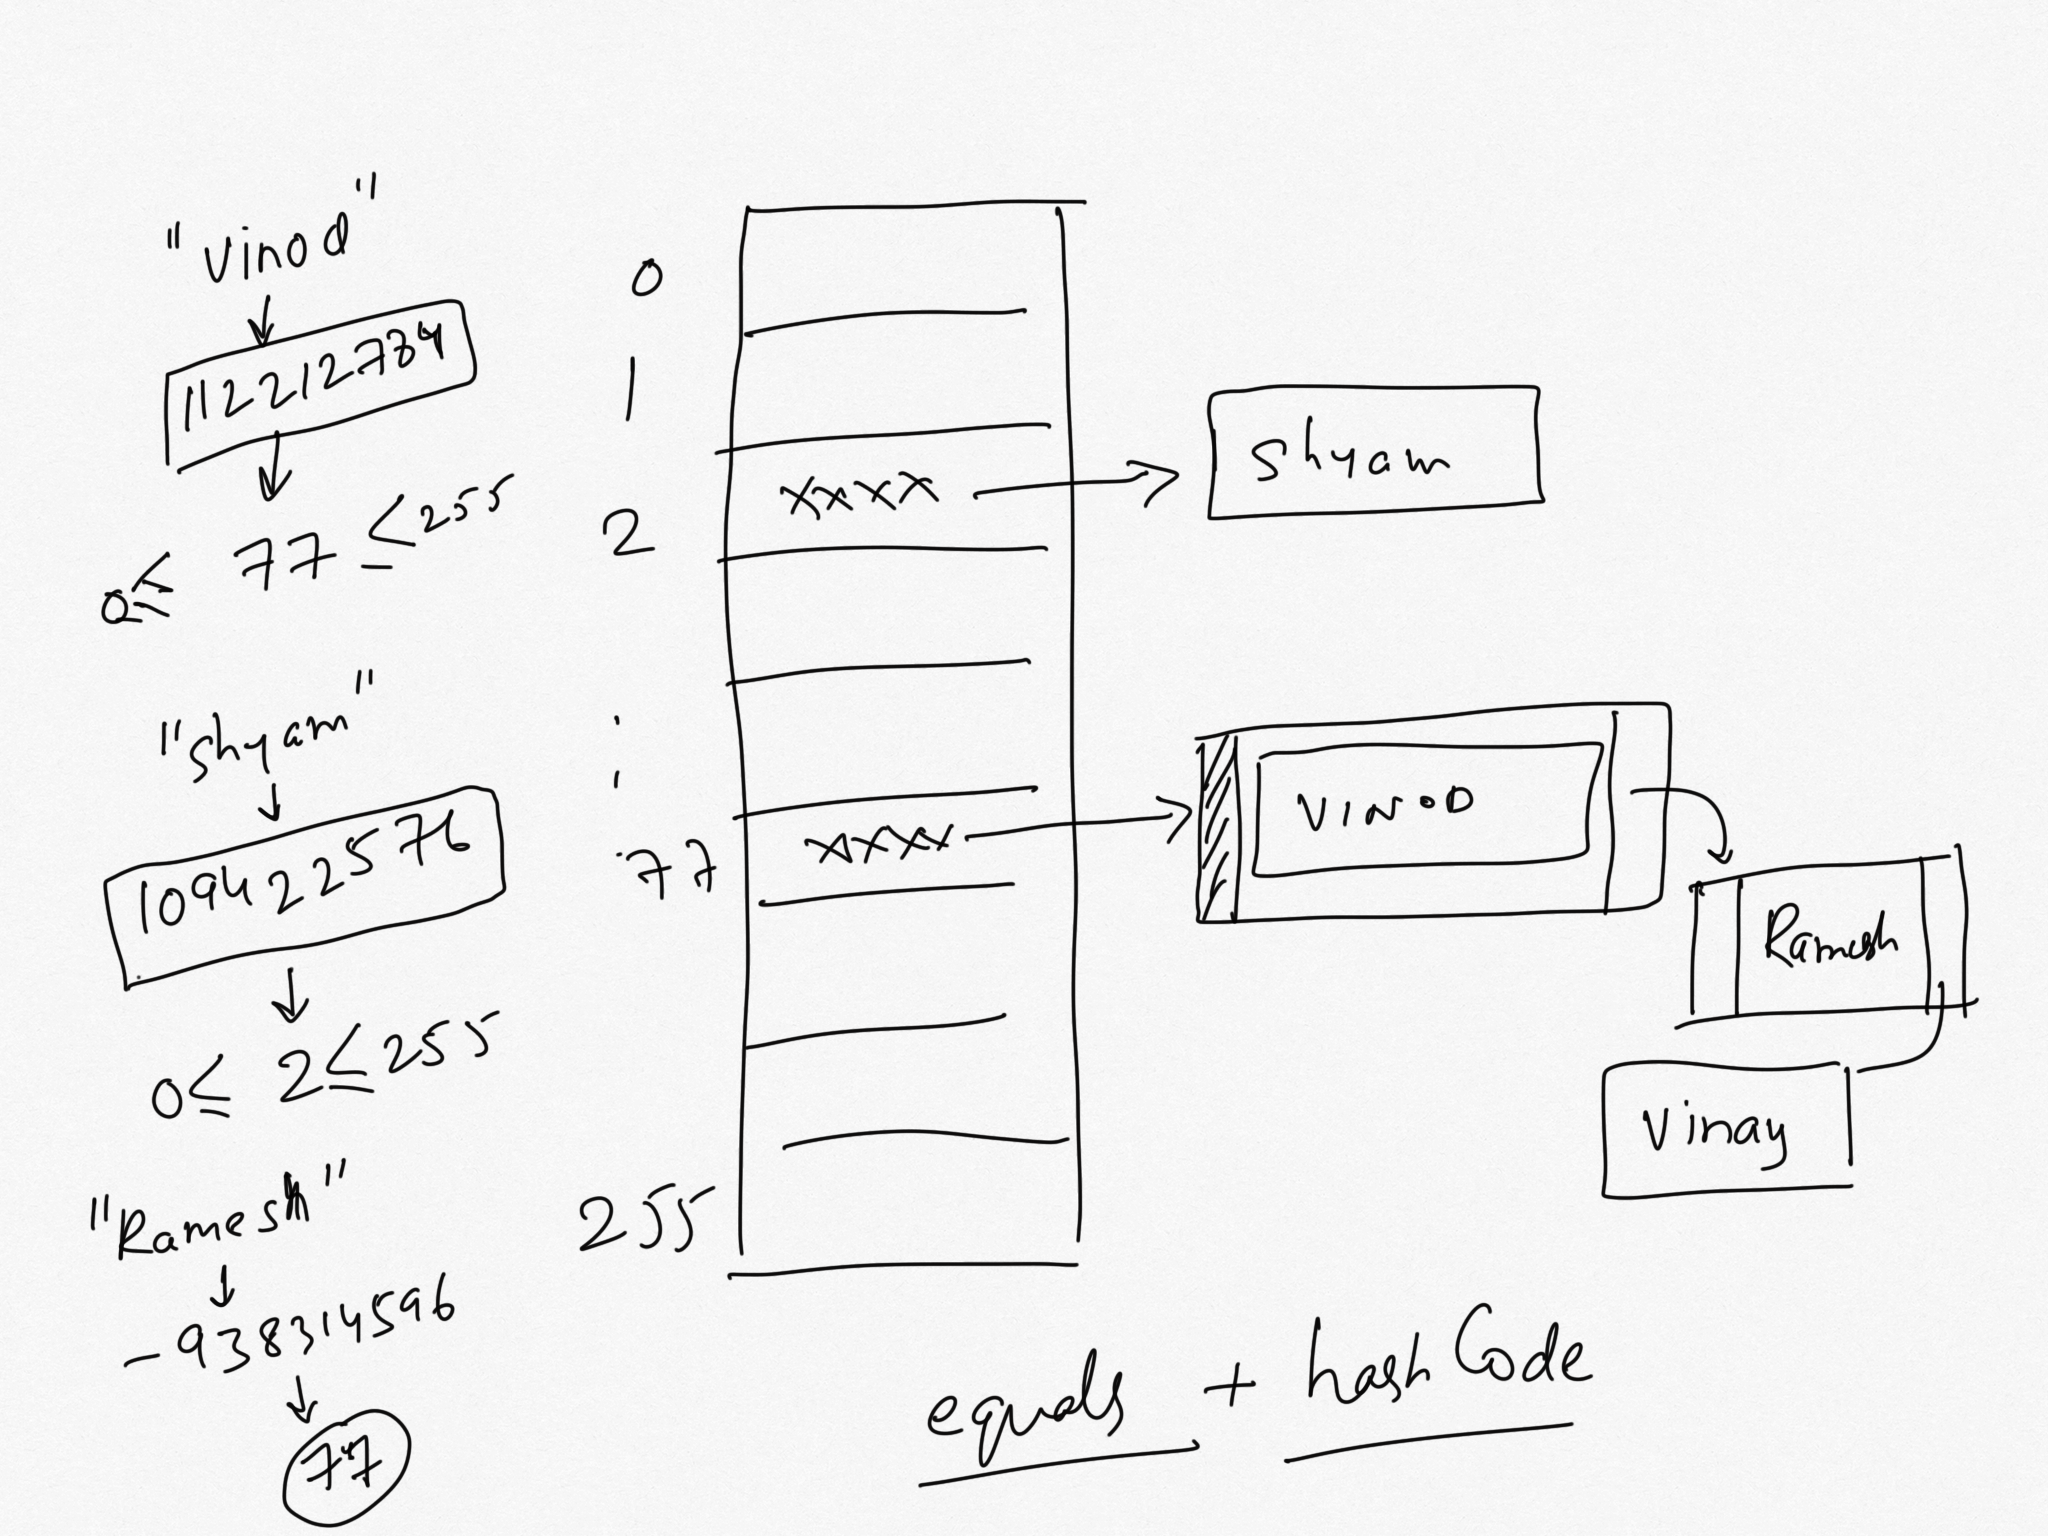 "Vinod"
112212784
0≤ 77 ≤255
"shyam"
109422576
0≤ 2≤255
"Ramesh"
-938314596
77
0
1
2
:
77
255
xxxx
xxxx
Shyam
VINOD
Ramesh
Vinay
equals + hashCode